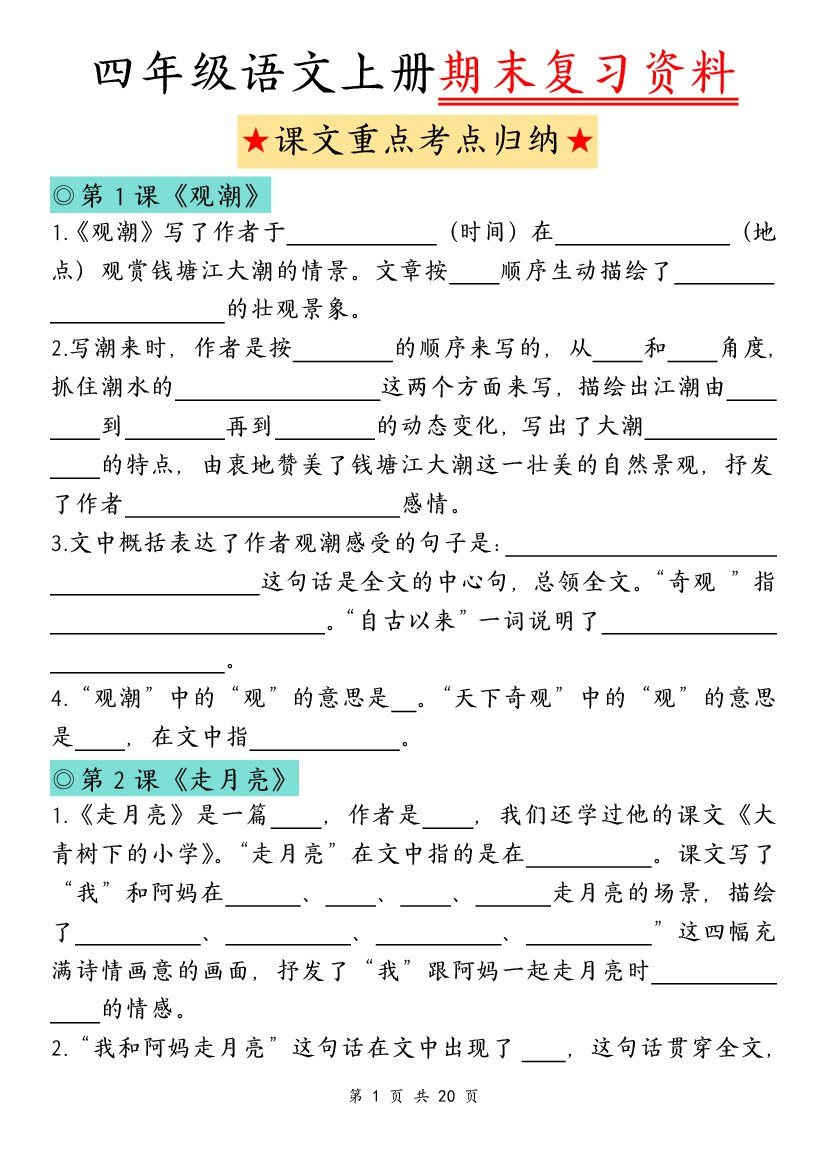 四年级语文上册期末复习资料
★课文重点考点归纳★
◎第 1 课《观潮》
1.《观潮》写了作者于____________（时间）在______________（地
点）观赏钱塘江大潮的情景。文章按____顺序生动描绘了________
______________的壮观景象。
2.写潮来时，作者是按________的顺序来写的，从____和____角度,
抓住潮水的________________这两个方面来写，描绘出江潮由____
____到________再到________的动态变化，写出了大潮__________
____的特点，由衷地赞美了钱塘江大潮这一壮美的自然景观，抒发
了作者______________________感情。
3.文中概括表达了作者观潮感受的句子是：______________________
________________这句话是全文的中心句，总领全文。“奇观 ”指
______________________。“自古以来”一词说明了______________
______________。
4.“观潮”中的“观”的意思是__。“天下奇观”中的“观”的意思
是____，在文中指____________。
◎第 2 课《走月亮》
1.《走月亮》是一篇____，作者是____，我们还学过他的课文《大
青树下的小学》。“走月亮”在文中指的是在__________。课文写了
“我”和阿妈在______、____、____、______走月亮的场景，描绘
了__________、__________、__________、__________”这四幅充
满诗情画意的画面，抒发了“我”跟阿妈一起走月亮时__________
____的情感。
2.“我和阿妈走月亮”这句话在文中出现了 ____，这句话贯穿全文,
第 1 页 共 20 页